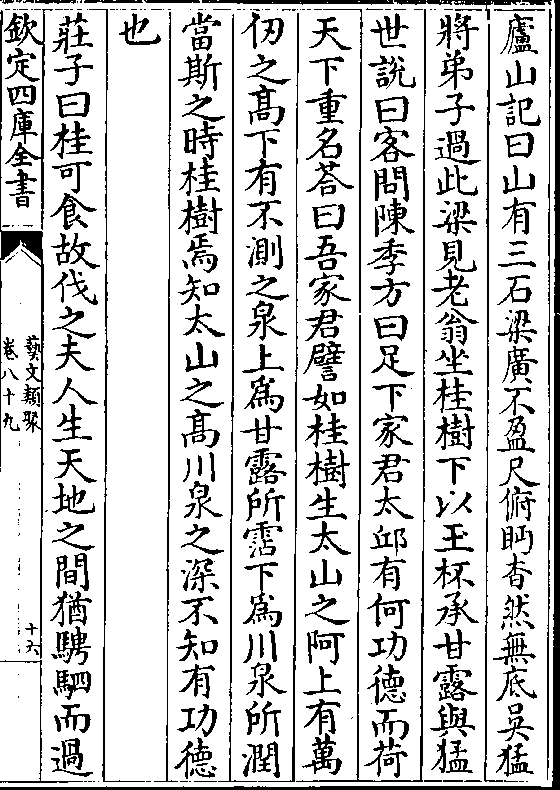 廬山記曰山有三石梁廣不盈尺俯眄杳然無底吳猛
將弟子過此梁見老翁坐桂樹下以玉杯承甘露與猛
世說曰客問陳季方曰足下家君太邱有何功德而荷
天下重名荅曰吾家君譬如桂樹生太山之阿上有萬
仞之髙下有不測之泉上為甘露所霑下為川泉所潤
當斯之時桂樹焉知太山之髙川泉之深不知有功德
也
莊子曰桂可食故伐之夫人生天地之間猶騁駟而過
欽定四庫全書
藝文類聚
卷八十九
十六